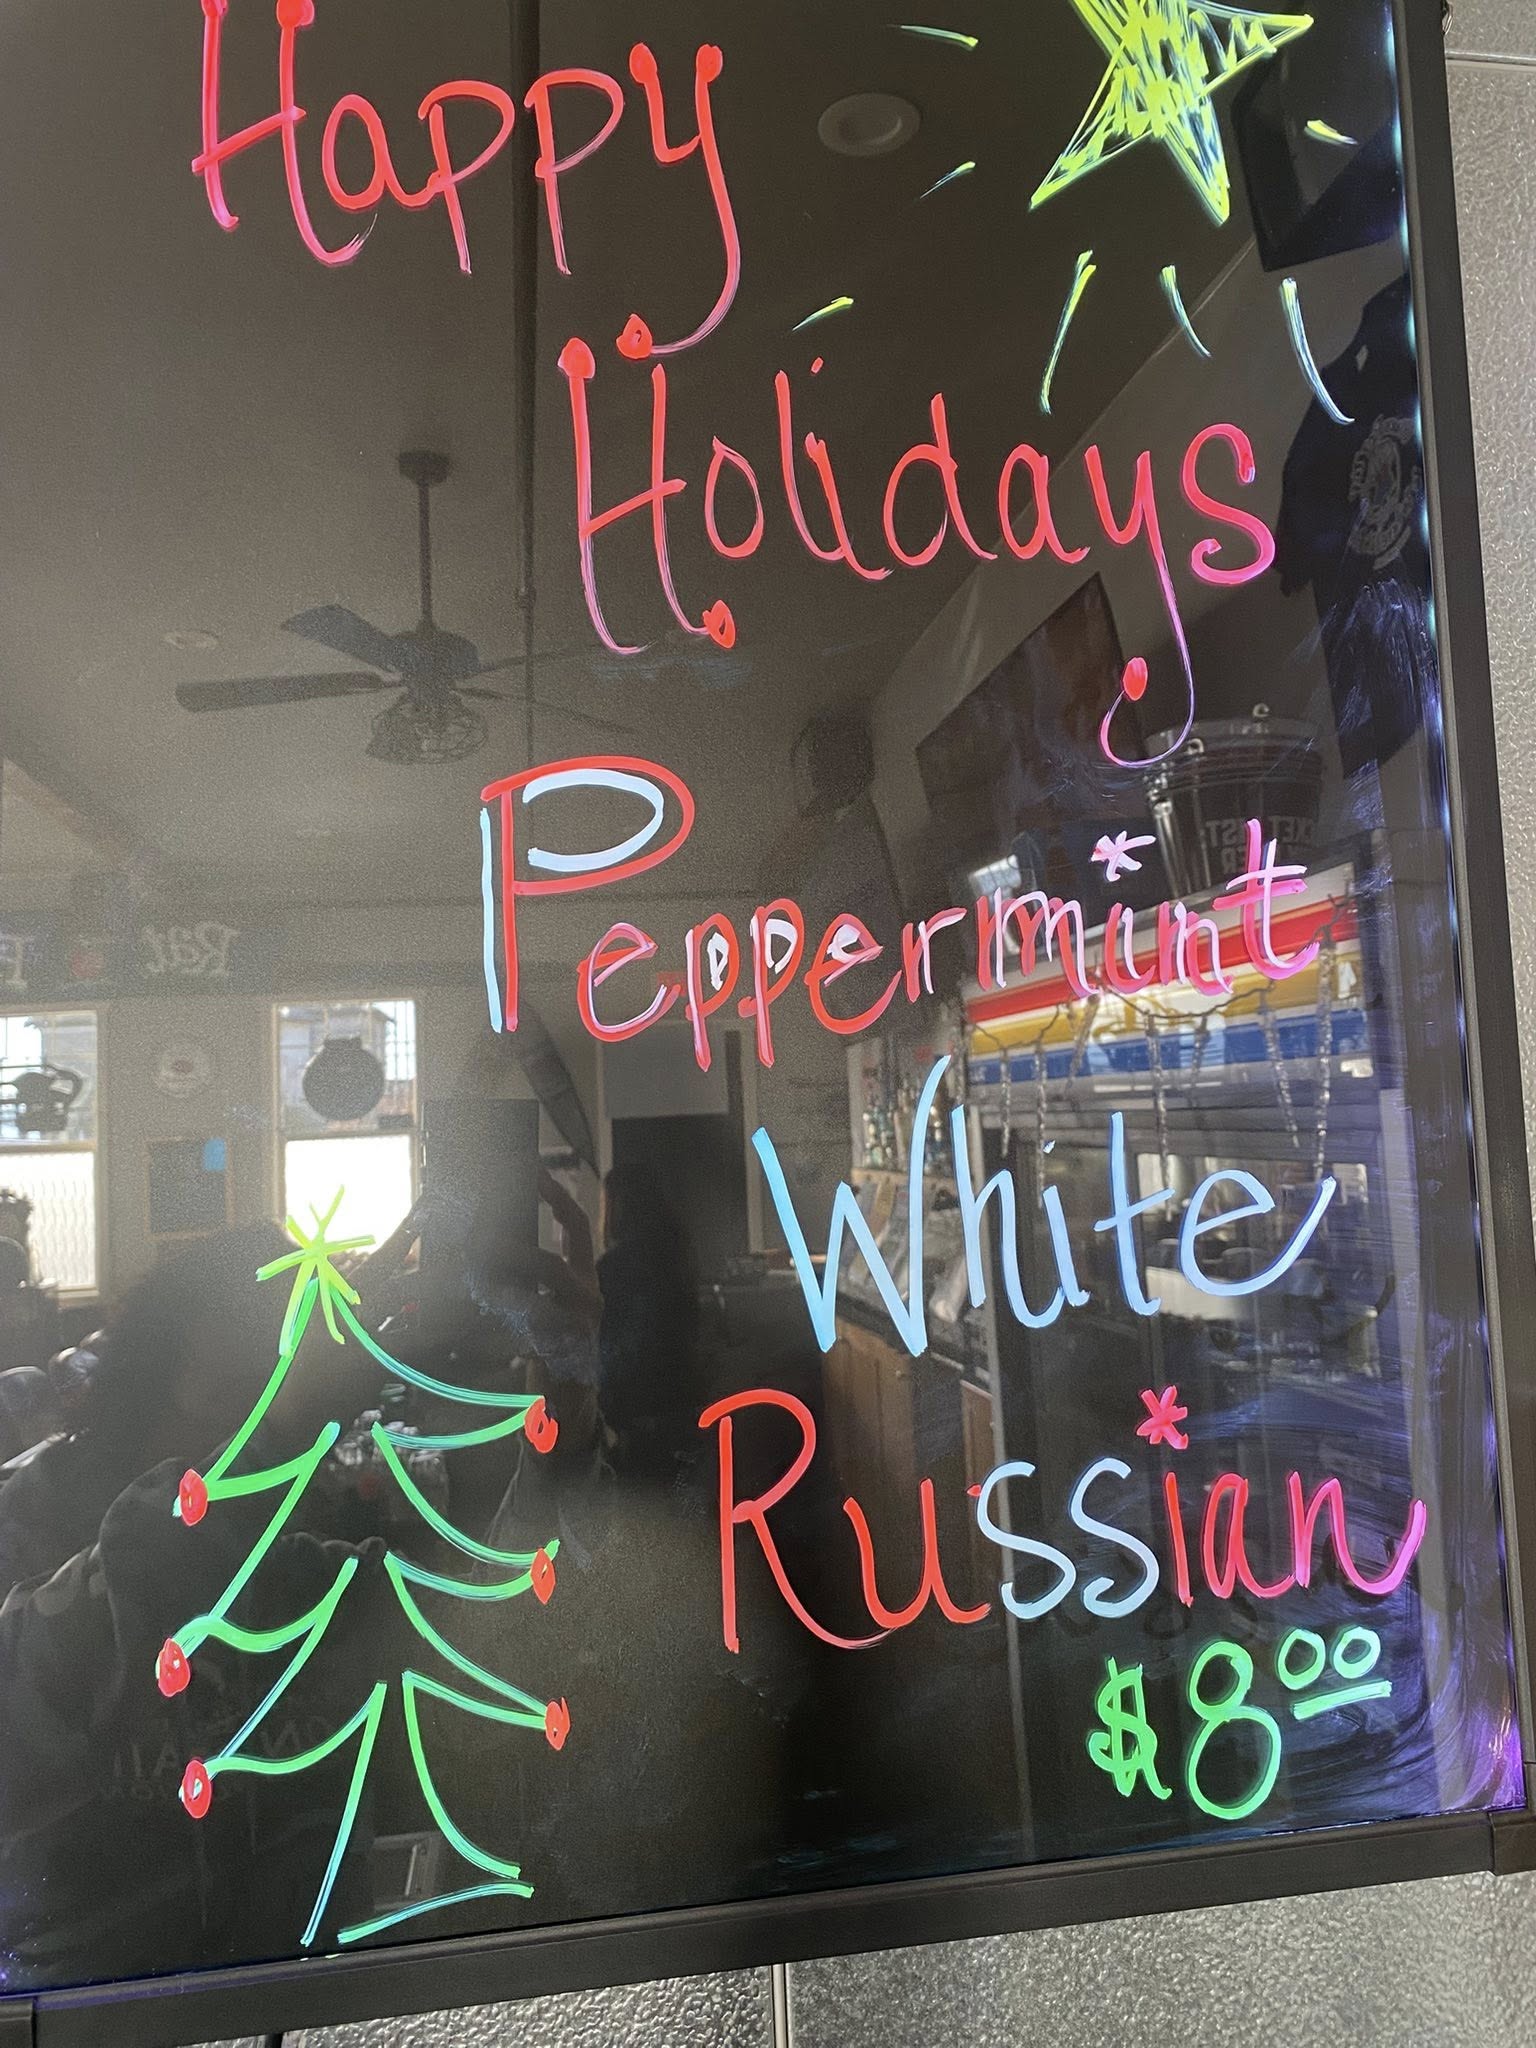 Happy
Holidays
Peppermint
White
Russian
$8.00